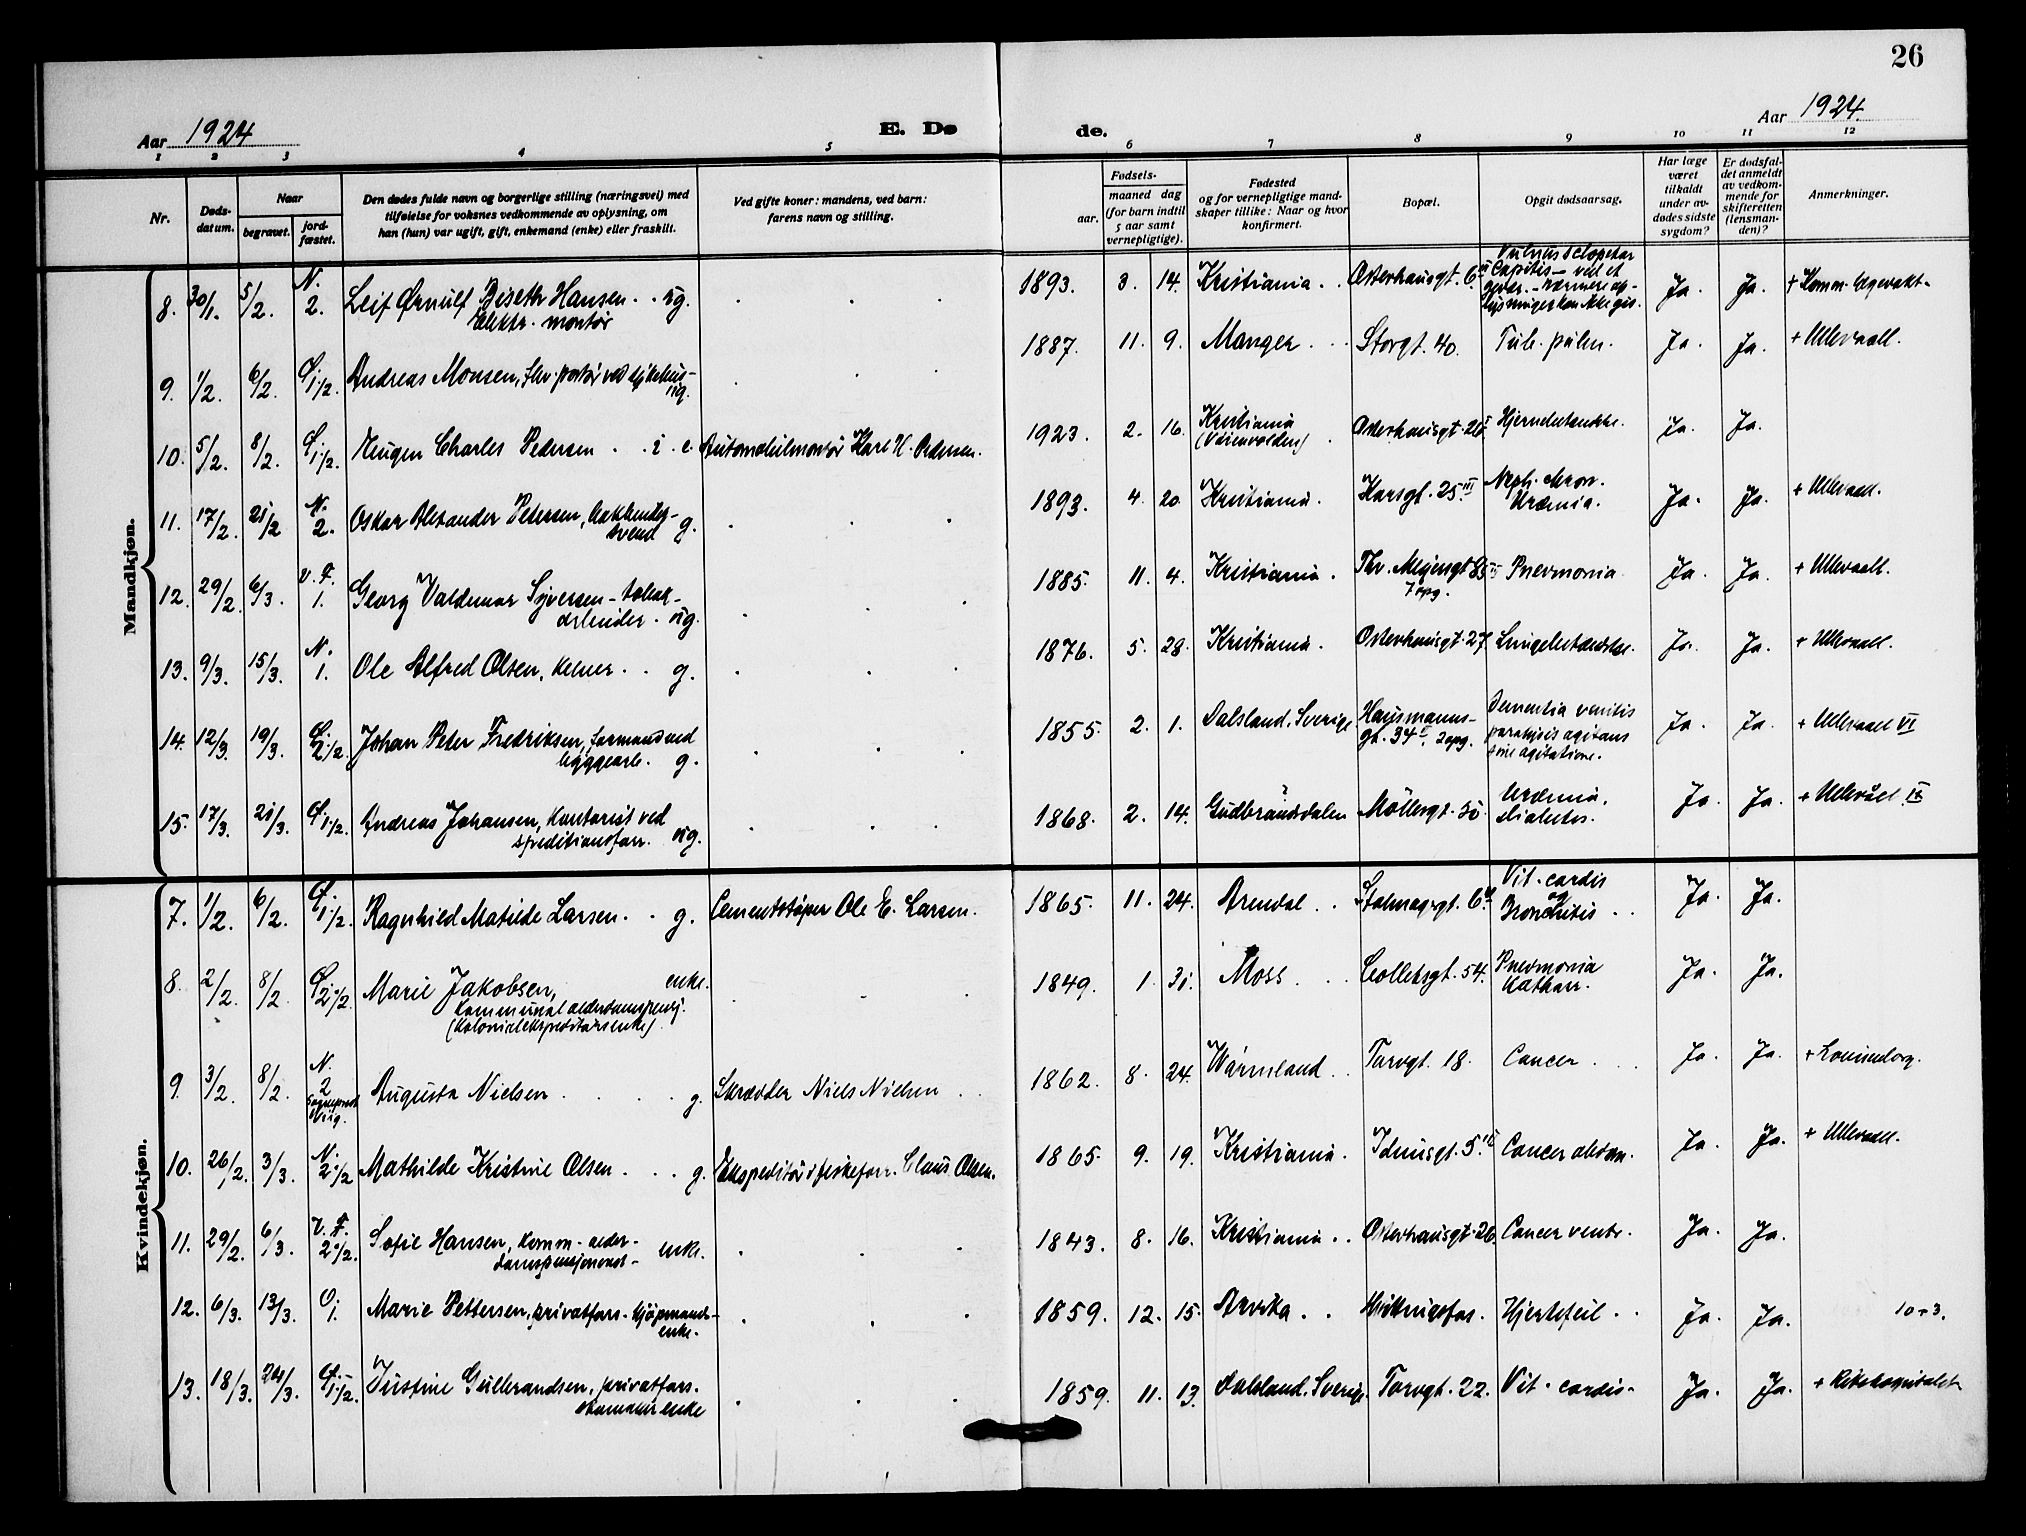 26
Aar 1924
E. Dø de.
Aar 1924.
1 2 3 4 5 6 7 8 9 10 11 12
Nr.
Døds-
datum.
Naar
begravet.
jord-
fæstet.
Den dødes fulde navn og borgerlige stilling (næringsvei) med
tilføielse for voksnes vedkommende av oplysning, om
han (hun) var ugift, gift, enkemand (enke) eller fraskilt.
Ved gifte koner: mandens, ved barn:
farens navn og stilling.
Fødsels-
aar.
maaned dag
(for barn indtil
5 aar samt
vernepligtige).
Fødested
og for vernepligtige mand-
skaper tillike: Naar og hvor
konfirmert.
Bopæl.
Opgit dødsaarsag.
Har læge
været
tilkaldt
under av-
dødes sidste
sygdom?
Er dødsfal-
det anmeldt
av vedkom-
mende for
skifteretten
(lensman-
den)?
Anmerkninger.
Mandkjøn.
8. 30/1. 5/2. N. 2. Leif Ørnulf Biseth Hansen. ug. 1893. 3. 14. Kristiania Osterhausgt. 6 Ja. Ja. + Komm. lægevakt.
Elektr. montør
9. 1/2. 6/2. 1/2. Andreas Monsen, ved sykehus- ug. 1887. 11. 9. Manger Storgt. 40. Tub. pulm. Ja. Ja. + Ullevaall.
10. 5/2. 8/2. 1/2. Eugen Charles Pedersen Automobilmontør Karl H. Pedersen. 1923. 2. 16. Kristiania Osterhausgt. 26 Ja. Ja.
11. 17/2. 21/2 N. 2. Oskar Alexander Petersen, g. 1893. 4. 20 Kristiania. Karsgt. 25 III Neph. chron. Ja. Ja. + Ullevaall.
svend Uræmia.
12. 29/2. 6/3. V. F. 1. Georg Valdemar Syversen - tobak- 1885. 11. 4. Kristiania. Thv. Meyersgt 85 Pnevmonia Ja. Ja. + Ullevaall.
arbeider. ug. 7 opg.
13. 9/3. 15/3. N. 1. Ole Alfred Olsen, kelner g. 1876. 5. 28. Kristiania. Osterhausgt. 27 Lungebetændelse. Ja. Ja. + Ullevaall.
14. 12/3. 19/3. 2 1/2. Johan Peter Fredriksen, formand ved 1855. 2. 1. Dalsland, Sverige Hausmanns- Dementia senilis Ja. Ja. + Ullevaall VI
byggearb. g. gt. 34 II, 2 opg. paralysis agitans
sine agitatione.
15. 17/3. 21/3. 1/2. Andreas Johansen, kontorist ved 1868. 2. 14. Gudbrandsdalen Møllergt. Uræmia, Ja. Ja. + Ullevål IX
speditionsforr. ug. diabetes.
Kvindekjøn.
7. 1/2. 6/2. 1/2. Ragnhild Matilde Larsen g. Cementstøper Ole E. Larsen. 1865. 11. 24. Arendal Vit. cordis Ja. Ja.
og
Bronchitis
8. 2/2. 8/2. 2 1/2. Marie Jakobsen, enke. 1849. 1. 31. Moss Collettsgt. 54. Pnevmonia Ja. Ja.
Kommunal alderdomspensj. Katharr.
(Kolonialekspeditørs enke)
9. 3/2. 8/2. N. 2 Augusta Nielsen g. Skrædder Niels Nielsen 1862. 8. 24. Wärmland Torvgt. 18. Cancer Ja. Ja. + Lovisenberg.
10. 26/2. 3/3. N. 2 1/2 Mathilde Kristine Olsen g. Ekspeditør i fiskeforr. Claus Olsen. 1865. 9. 19. Kristiania. Idunsgt. 5 Cancer abdom. Ja. Ja. + Ullevaall.
11. 29/2. 6/3. V. F. 2 1/2. Sofie Hansen, komm. alder- enke. 1843. 8. 16. Kristiania Osterhausgt. 26. Cancer ventr. Ja. Ja.
domspensjonist -
12. 6/3. 13/3. 1. Marie Pettersen, privatfors. kjøpmands- 1859. 12. 15. Arvika Hjertefeil Ja. Ja. 10 + 3.
enke.
13. 18/3. 24/3. 1/2. Justine Gulbrandsen, privatfors. 1859. 11. 13. Dalsland, Sverige Torvgt. 22. Vit. cordis. Ja. Ja. + Rikshospitalet
enke